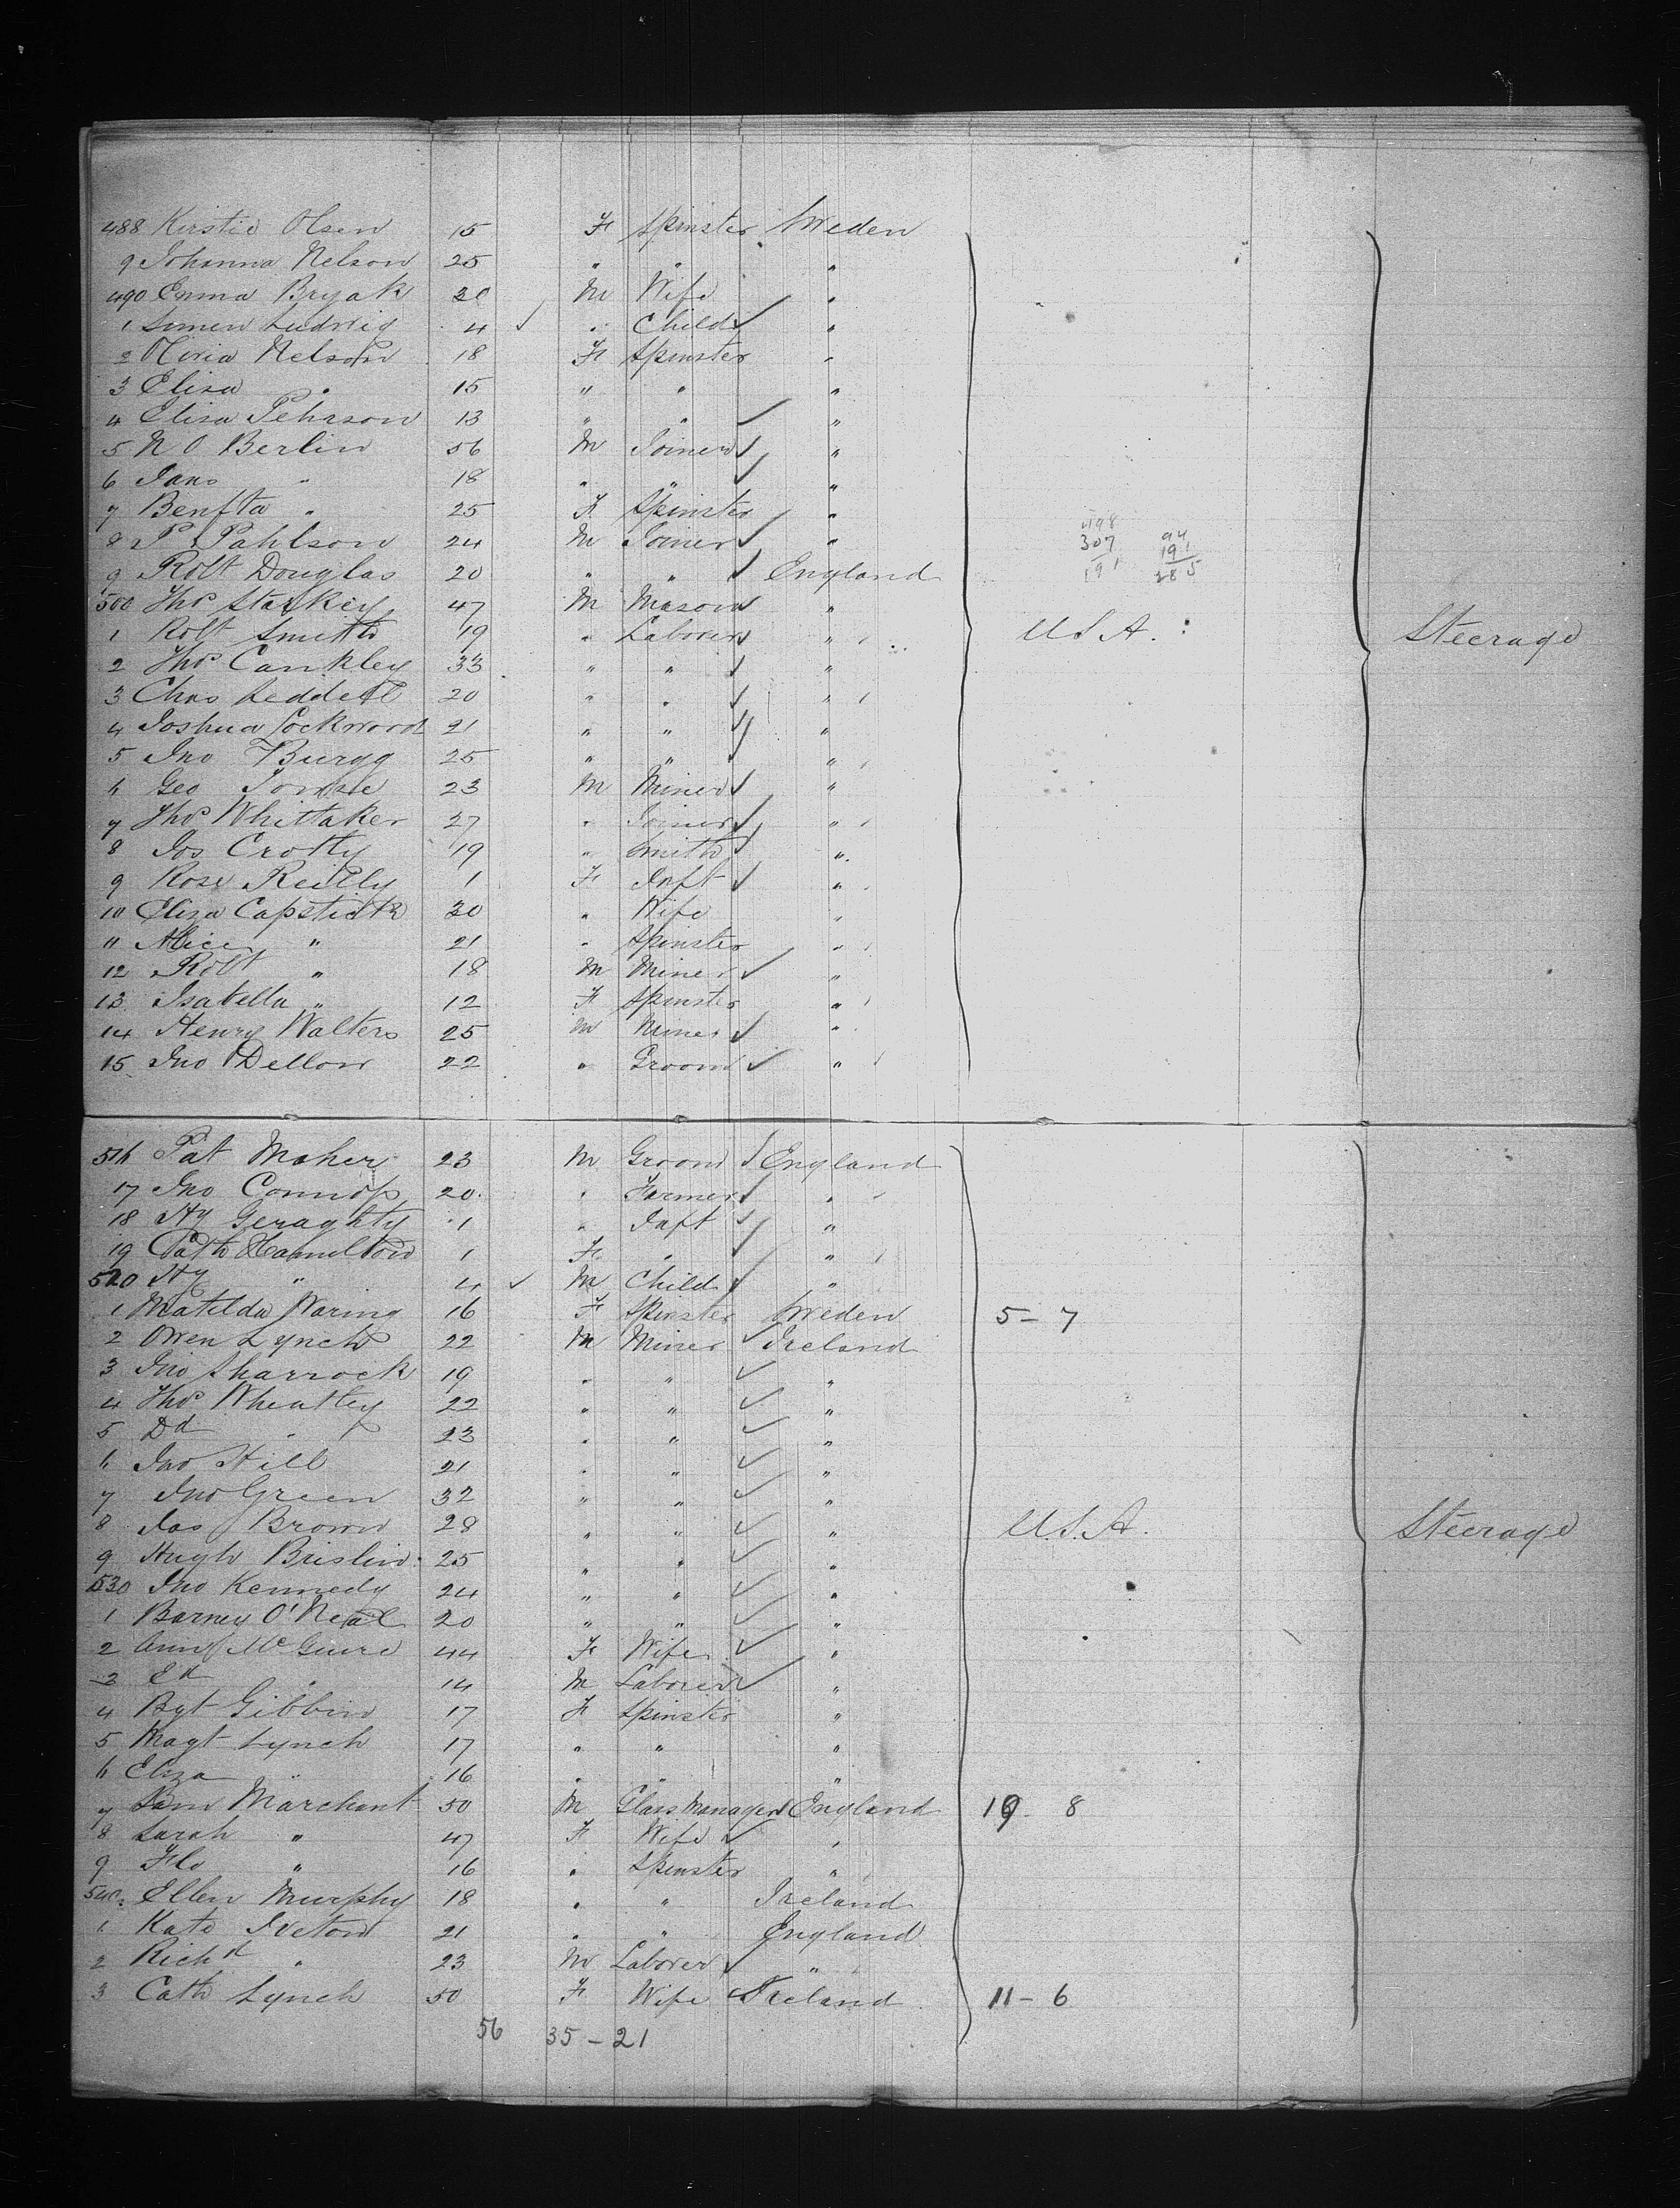 488 Kirstie Olsen 15 F Spinster Sweden
9 Johanna Nelson 25 " " "
490 Emma Bryak 30 M Wife "
1 Simen Ludwig 4 ✓ " Child ✓ "
2 Olivia Nelson 18 F Spinster "
3 Elisa " 15 " " "
4 Elisa Pehrson 13 " " ✓ "
5 N O Berlin 56 M Joiner ✓ "
6 Jans " 18 " " ✓ "
7 Benfta " 25 F Spinster "
8 P Pahlson 24 M Joiner ✓ "
498
307
191
94
191
285
9 Robt Douglas 20 " " ✓ England
500 Thos Starkey 47 M Mason ✓ "
1 Robt Smith 19 " Laborer ✓ " U.S.A. Steerage
2 Thos Cankley 33 " " ✓ "
3 Chas Leddell 20 " " ✓ "
4 Joshua Lockwood 21 " " ✓ "
5 Jno Burgg 25 " " ✓ "
6 Geo 23 M Miner ✓ "
7 Thos Whittaker 27 " Joiner ✓ "
8 Jos Crotty 19 " Smith ✓ "
9 Rose Reilly 1 F Inft ✓ "
10 Eliza Capstick 30 " Wife "
11 Alice " 21 " Spinster "
12 Robt " 18 M Miner ✓ "
13 Isabella " 12 F Spinster "
14 Henry Walters 25 M Miner ✓ "
15 Jno Dellow 22 " Groom ✓ "
516 Pat Maher 23 M Groom ✓ England
17 Jno Connop 20 " Farmer ✓ "
18 Hy Geraghty 1 " Inft ✓ "
19 Cath Hamilton 1 F " ✓ "
520 Hy " 4 ✓ M Child ✓ "
1 Matilda Waring 16 F Spinster Sweden 5 - 7
2 Owen Lynch 22 M Miner ✓ Ireland
3 Jno Sharrock 19 " " ✓ "
4 Thos Wheatley 22 " " ✓ "
5 Dd " 23 " " ✓ "
6 Jno Hill 21 " " ✓ "
7 Jno Green 32 " " ✓ "
8 Jas Brown 28 " " ✓ " U.S.A. Steerage
9 Hugh Brislin 25 " " ✓ "
530 Jno Kennedy 24 " " ✓ "
1 Barney O'Neal 20 " " ✓ "
2 Ann McGuire 44 F Wife ✓ "
3 Ed " 14 M Laborer ✓ "
4 Bgt Gibbin 17 F Spinster "
5 Magt Lynch 17 " " "
6 Eliza " 16 " " "
7 Sam Marchant 50 M Glass Manager ✓ England 19 - 8
8 Sarah " 47 F Wife ✓ "
9 Flo " 16 " Spinster "
540 Ellen Murphy 18 " " Ireland
1 Kate Ireton 21 " " England
2 Richd " 23 M Laborer ✓ "
3 Cath Lynch 50 F Wife ✓ Ireland 11 - 6
56 35 - 21